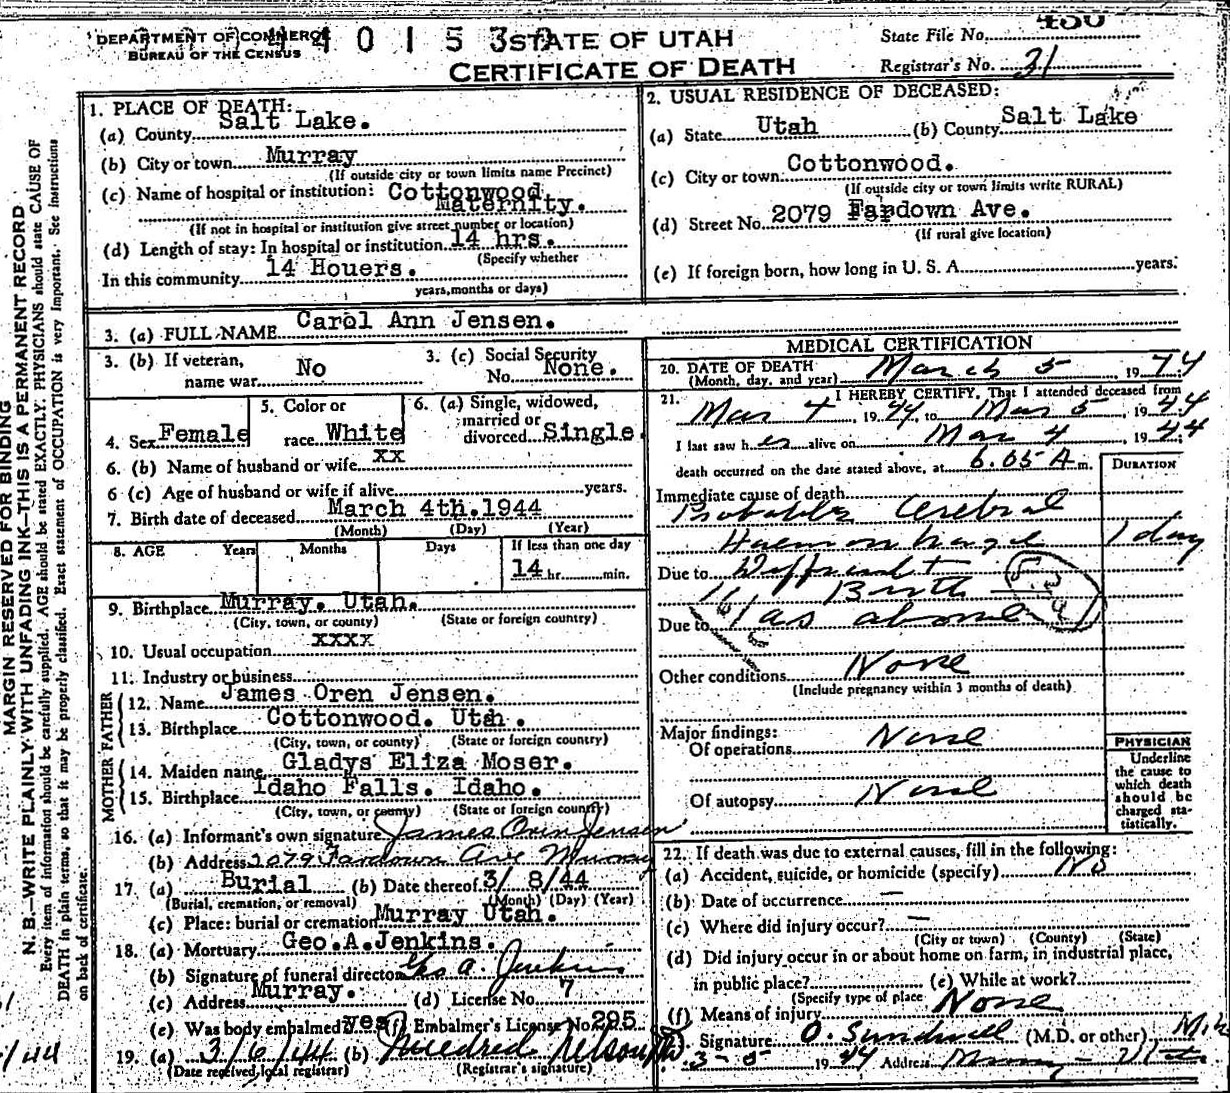 DEPARTMENT OF COMMERCE
BUREAU OF THE CENSUS
STATE OF UTAH
CERTIFICATE OF DEATH
State File No. 450
Registrar's No. 31
MARGIN RESERVED FOR BINDING
N. B.—WRITE PLAINLY WITH UNFADING INK—THIS IS A PERMANENT RECORD
Every item of information should be carefully supplied. AGE should be stated EXACTLY. PHYSICIANS should state CAUSE OF
DEATH in plain terms, so that it may be properly classified. Exact statement of OCCUPATION is very important. See instructions
on back of certificate.
1. PLACE OF DEATH:
(a) County Salt Lake.
(b) City or town Murray
(If outside city or town limits name Precinct)
(c) Name of hospital or institution: Cottonwood
Maternity.
(If not in hospital or institution give street number or location)
(d) Length of stay: In hospital or institution 14 hrs.
(Specify whether
In this community 14 Houers.
years, months or days)
2. USUAL RESIDENCE OF DECEASED:
(a) State Utah (b) County Salt Lake
(c) City or town Cottonwood.
(If outside city or town limits write RURAL)
(d) Street No. 2079 Fardown Ave.
(If rural give location)
(e) If foreign born, how long in U. S. A. years.
3. (a) FULL NAME Carol Ann Jensen.
3. (b) If veteran, name war No
3. (c) Social Security No. None.
4. Sex Female
5. Color or race White
6. (a) Single, widowed, married or divorced Single.
6. (b) Name of husband or wife xx
6 (c) Age of husband or wife if alive years.
7. Birth date of deceased March 4th.1944
(Month) (Day) (Year)
8. AGE Years Months Days If less than one day
14 hr. min.
9. Birthplace Murray. Utah.
(City, town, or county) (State or foreign country)
10. Usual occupation xxxx
11. Industry or business
FATHER
12. Name James Oren Jensen.
13. Birthplace Cottonwood. Utah.
(City, town, or county) (State or foreign country)
MOTHER
14. Maiden name Gladys Eliza Moser.
15. Birthplace Idaho Falls. Idaho.
(City, town, or county) (State or foreign country)
16. (a) Informant's own signature James Orin Jensen
(b) Address 2079 Fardown Ave Murray
17. (a) Burial (b) Date thereof 3/ 8/44
(Burial, cremation, or removal) (Month) (Day) (Year)
(c) Place: burial or cremation Murray Utah.
18. (a) Mortuary Geo.A.Jenkins.
(b) Signature of funeral director Geo A. Jenkins
(c) Address Murray. (d) License No. 7
(e) Was body embalmed? yes (f) Embalmer's License No. 295
19. (a) 3/6/44 (b) Mildred Nelson
(Date received, local registrar) (Registrar's signature)
MEDICAL CERTIFICATION
20. DATE OF DEATH
(Month, day, and year) March 5, 1944
21. I HEREBY CERTIFY, That I attended deceased from
Mar 4, 1944 to Mar 5, 1944
I last saw her alive on Mar 4, 1944
death occurred on the date stated above, at 6.05 A m.
DURATION
Immediate cause of death
Probably Cerebral
Haemorrhage 1 day
Due to Difficult
Birth
Due to as above
Other conditions None
(Include pregnancy within 3 months of death)
Major findings:
Of operations None
Of autopsy None
PHYSICIAN
Underline
the cause to
which death
should be
charged sta-
tistically.
22. If death was due to external causes, fill in the following:
(a) Accident, suicide, or homicide (specify) No
(b) Date of occurrence —
(c) Where did injury occur? —
(City or town) (County) (State)
(d) Did injury occur in or about home on farm, in industrial place,
in public place? (e) While at work?
(Specify type of place
(f) Means of injury None
Signature O. Sundwall (M.D. or other) M.D.
3-5 1944 Address Murray - Utah